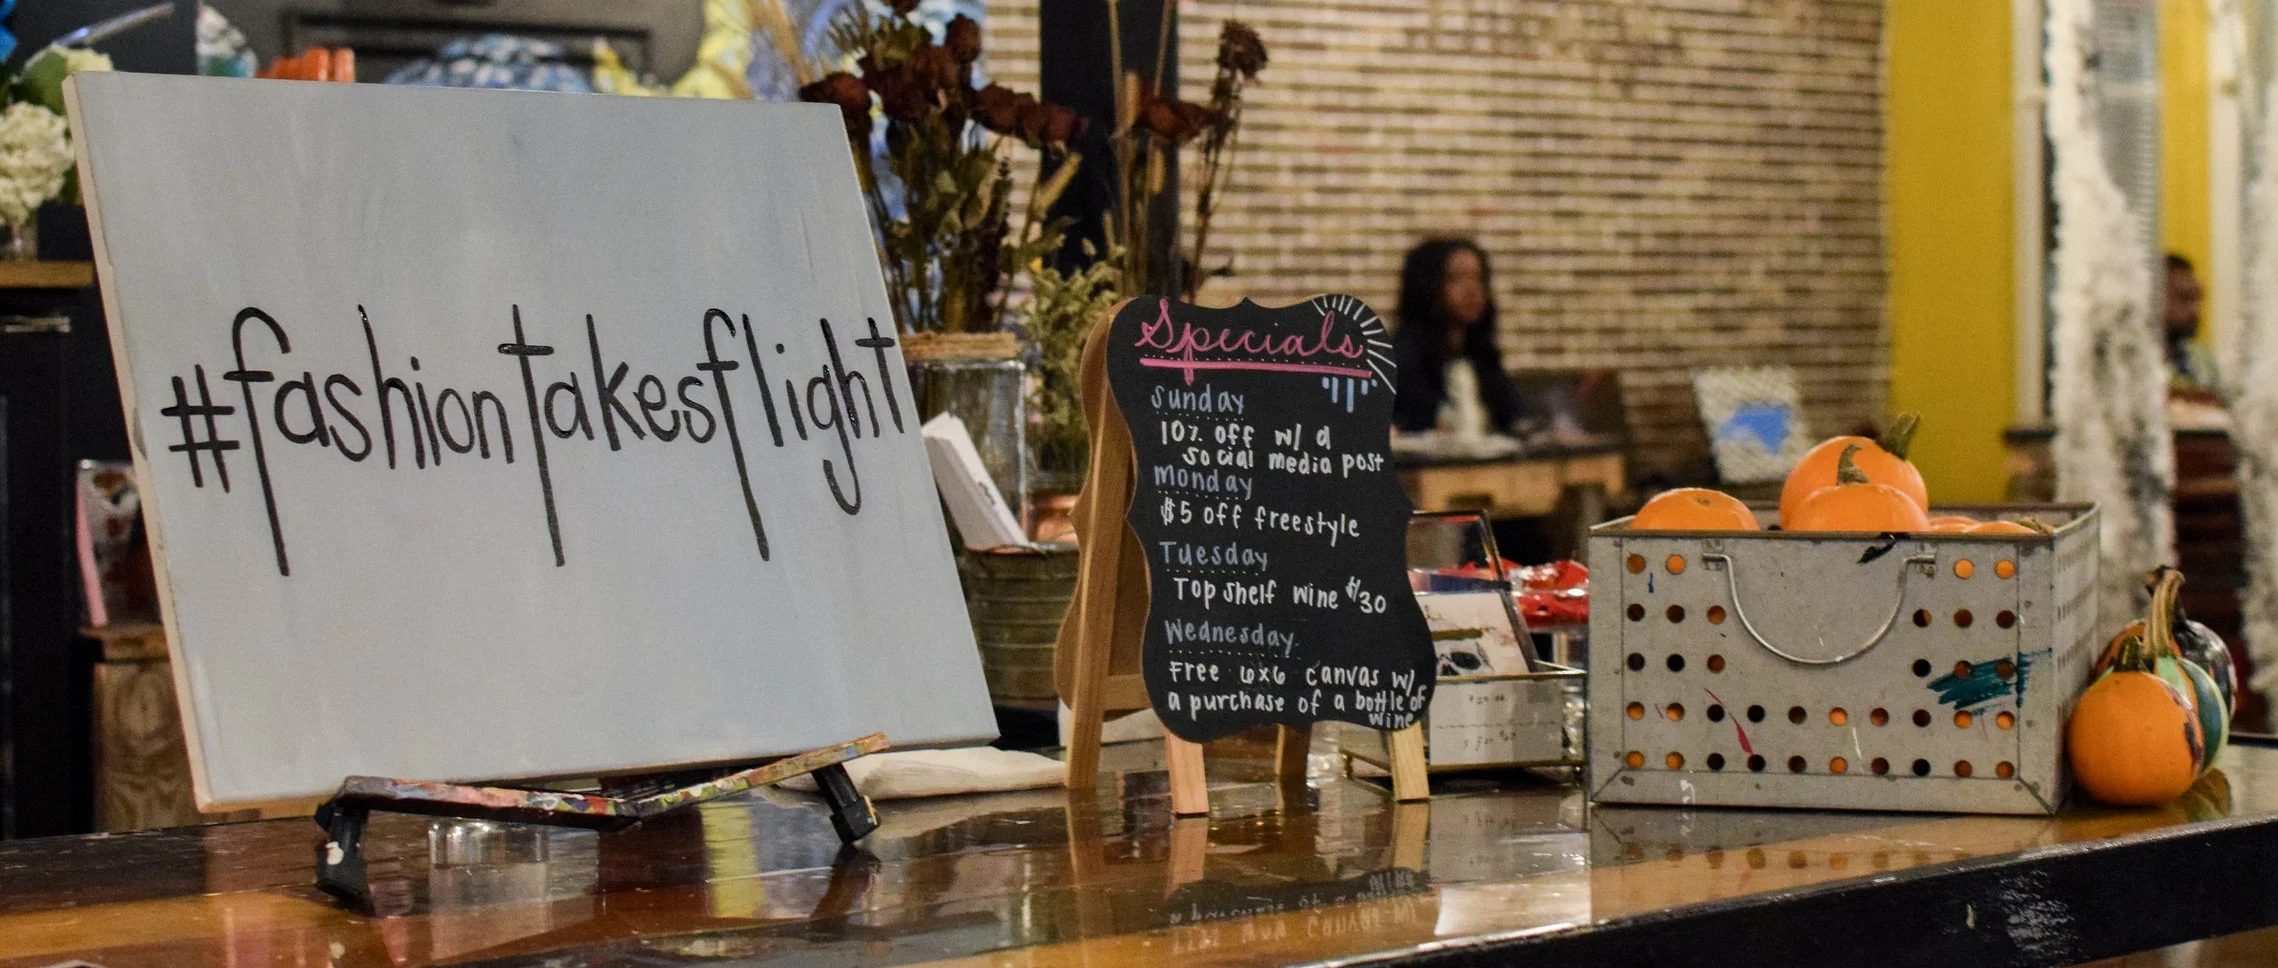 #fashiontakesflight
Specials
Sunday
10% off w/ a
social media post
Monday
$5 off freestyle
Tuesday
Top shelf wine $/30
Wednesday
Free 6x6 canvas w/
a purchase of a bottle of
wine